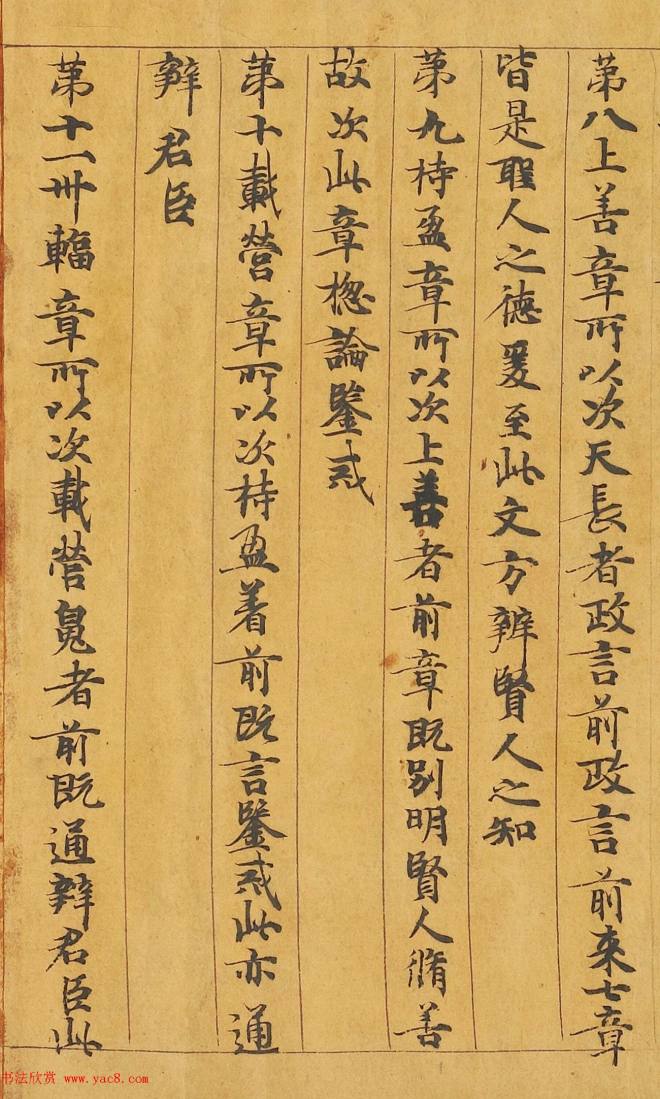 第八上善章所以次天長者政言前政言前來七章
皆是聖人之德爰至此文方辨賢人之知
第九持盈章所以次上善者前章既別明賢人脩善
故次此章惣論鑒戒
第十載營章所以次持盈着前既言鑒戒此亦通
辯君臣
第十一卅輻章所以次載營䰟者前既通辯君臣此
书法欣赏 www.yac8.com